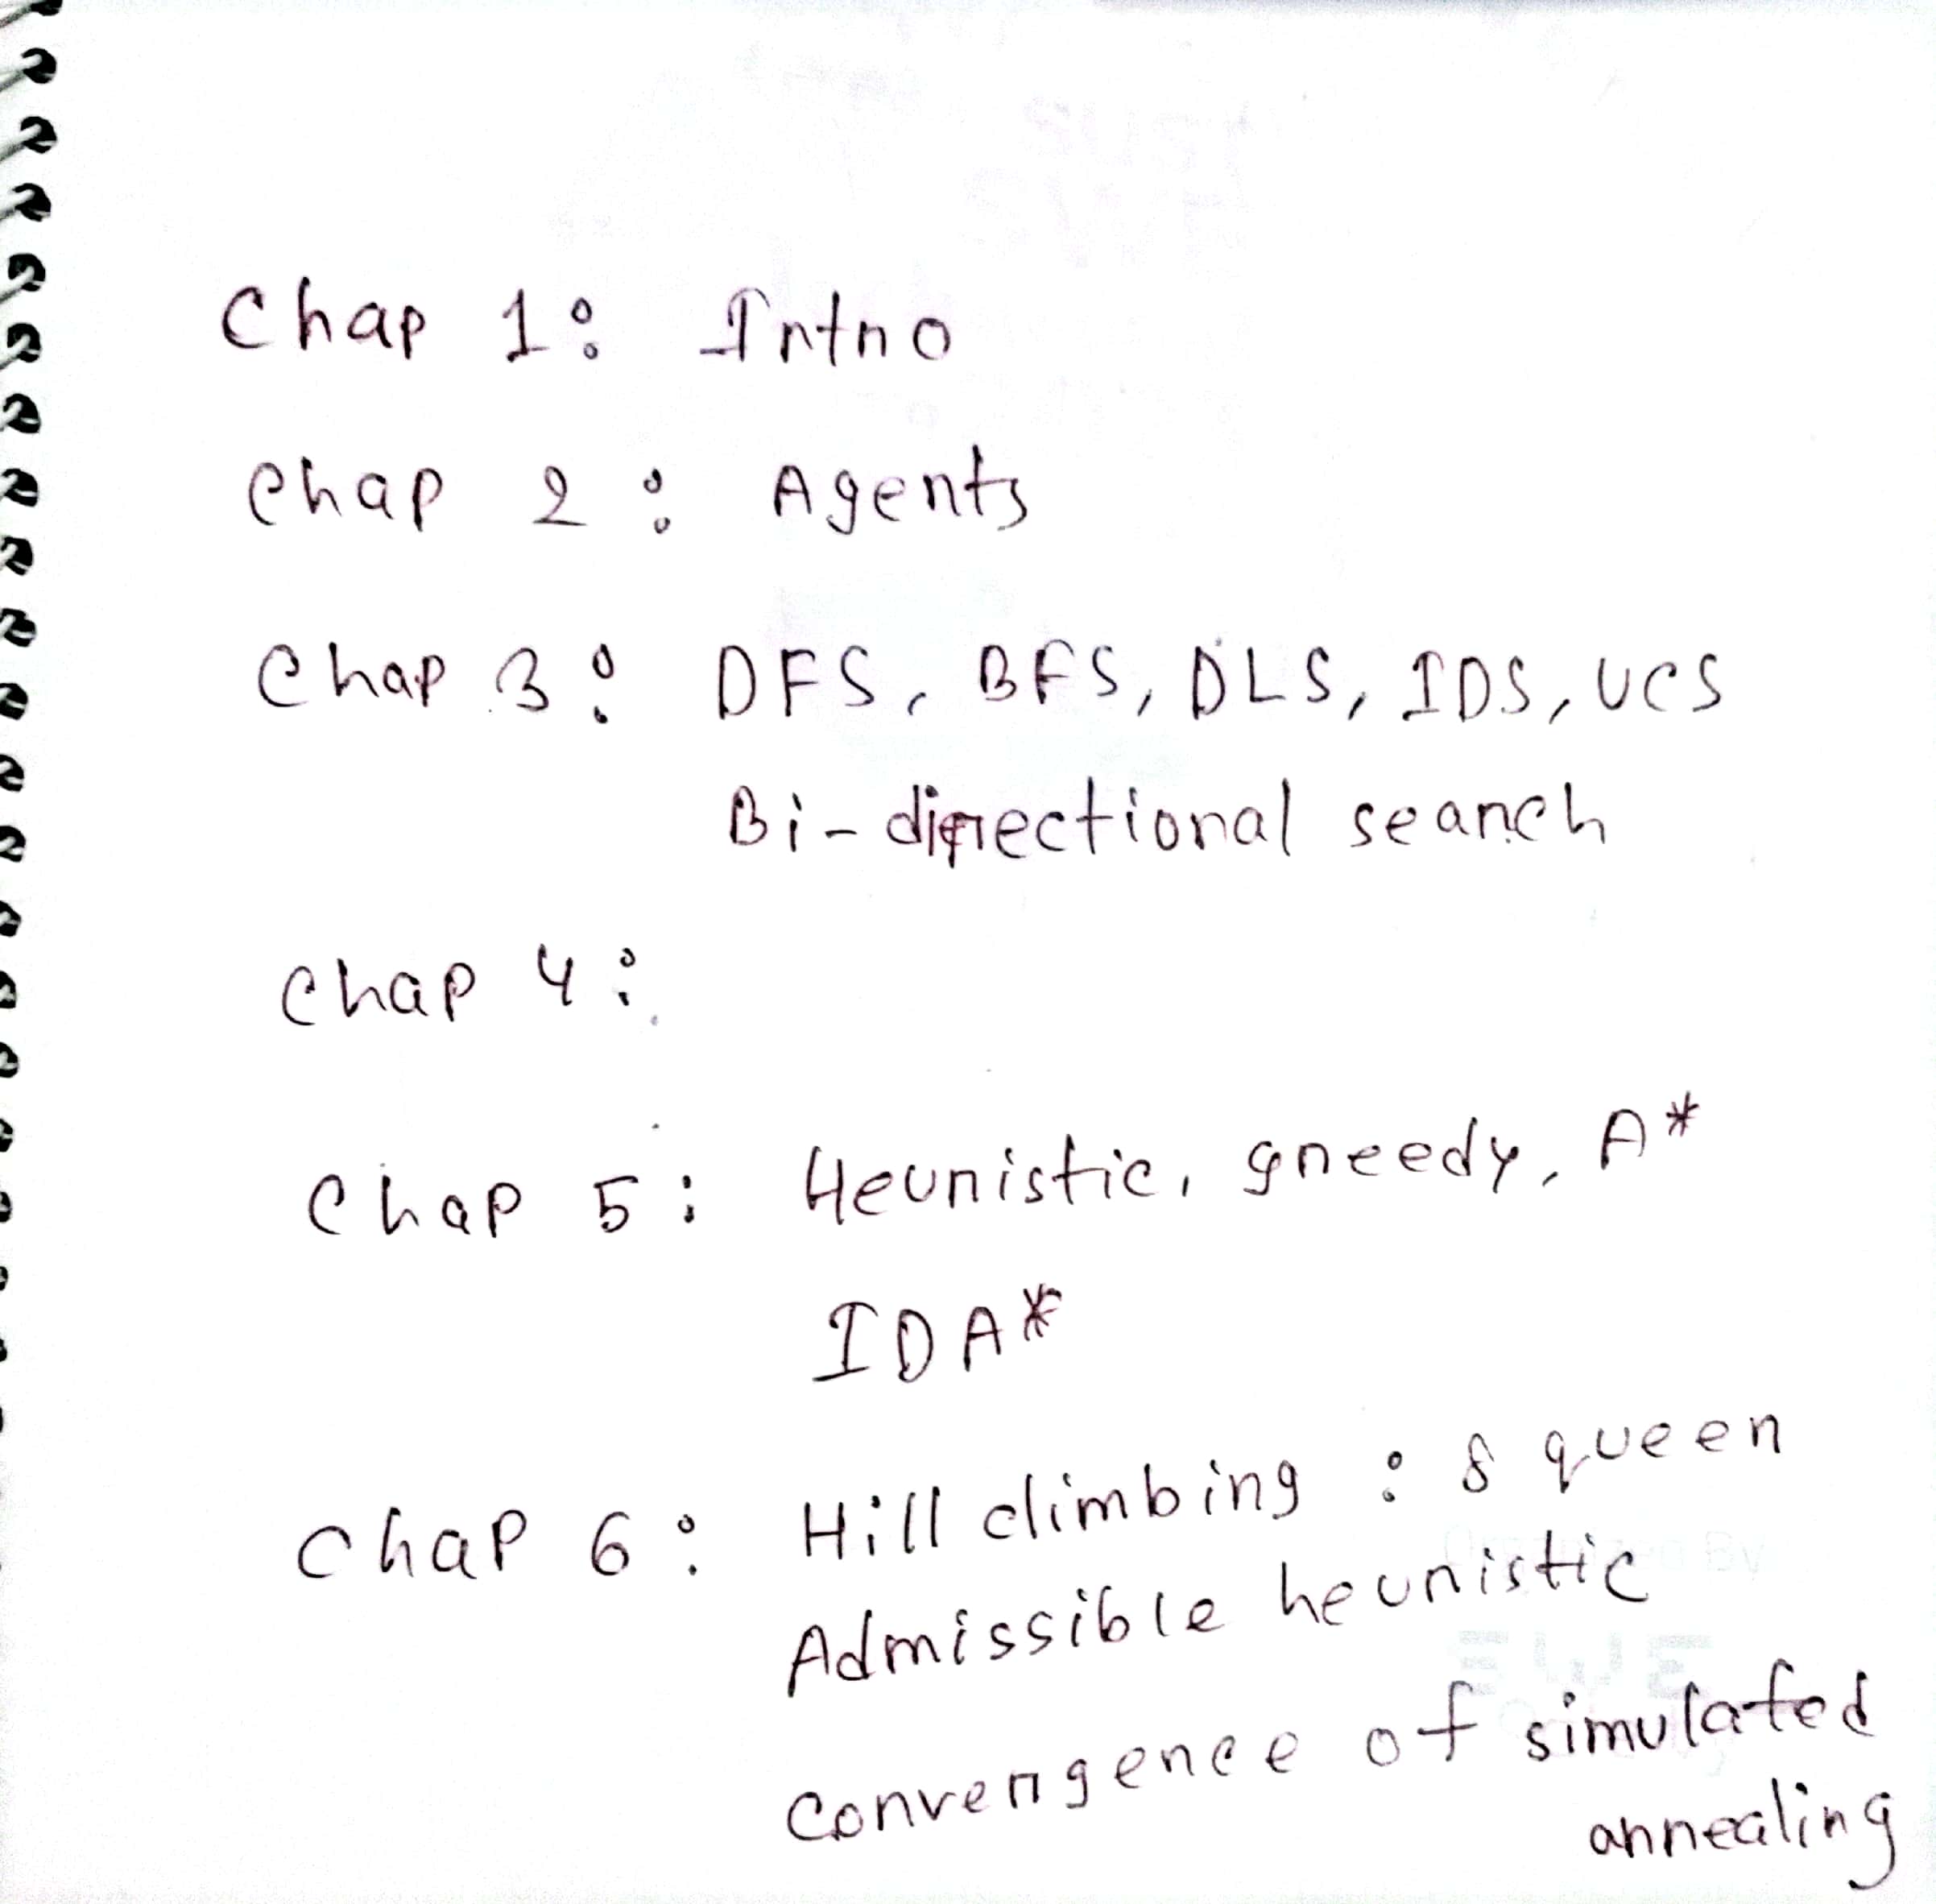 Chap 1: Intro
Chap 2: Agents
Chap 3: DFS, BFS, DLS, IDS, UCS
Bi-directional search
Chap 4:
Chap 5: Heuristic, greedy, A*
IDA*
Chap 6: Hill climbing : 8 queen
Admissible heuristic
Convergence of simulated
annealing